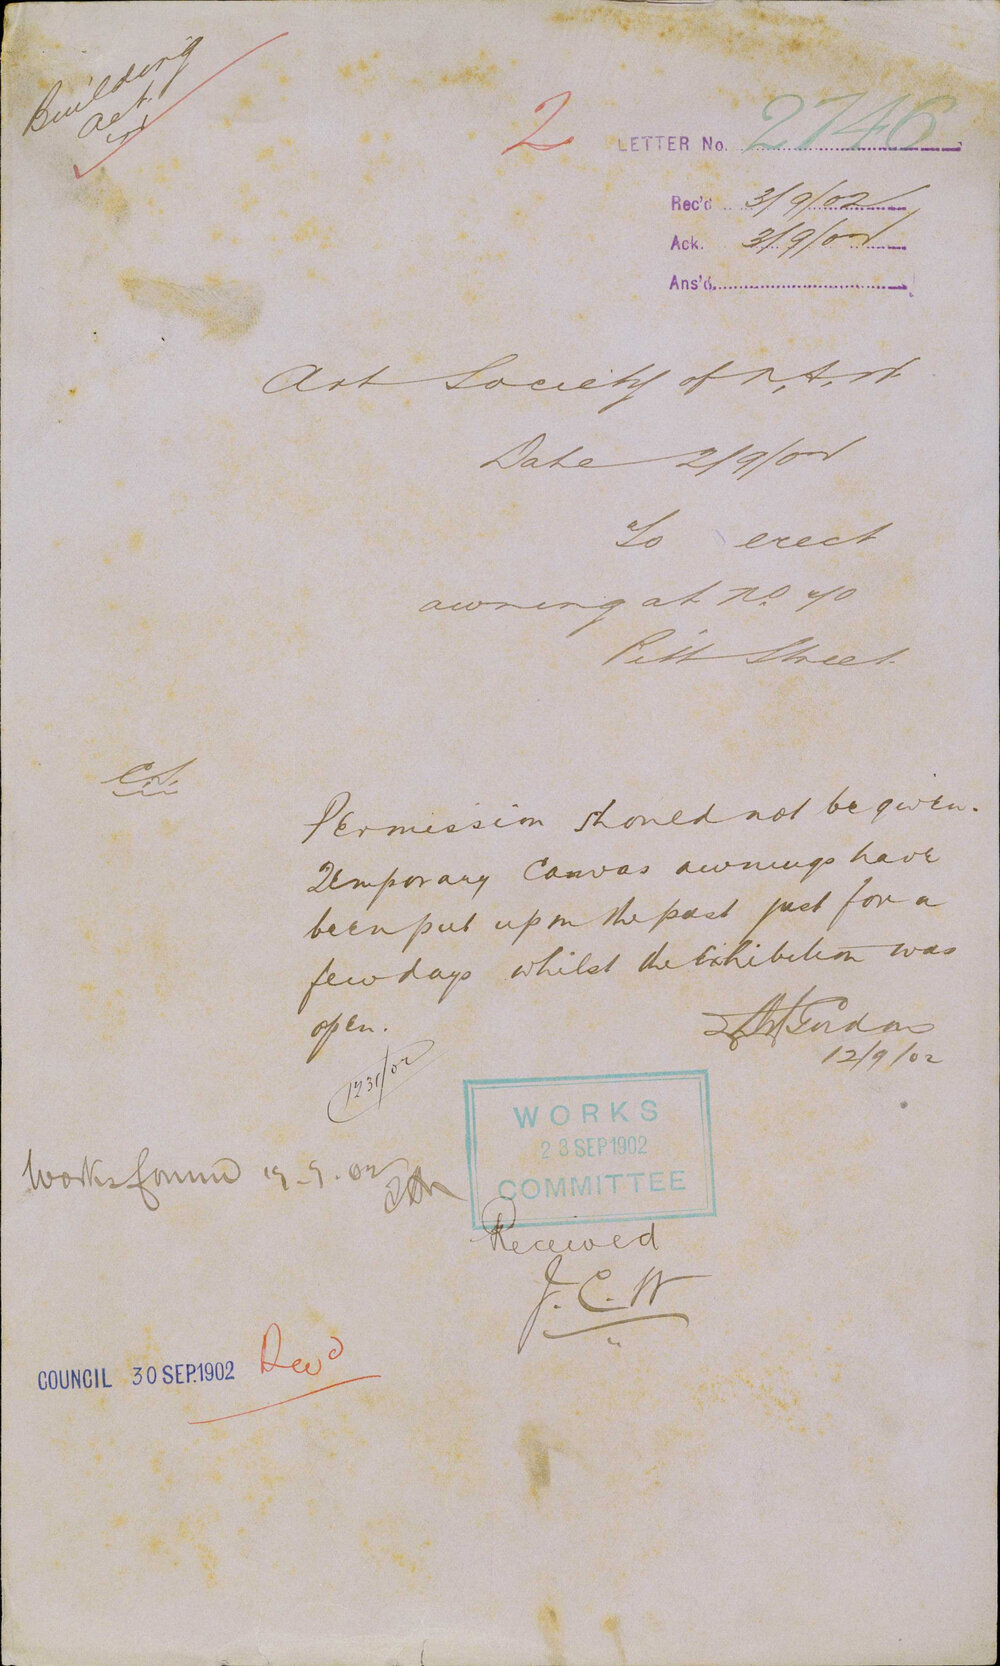 Building
Act
2
LETTER No. 2746
Rec'd 3/9/02
Ack. 3/9/02
Ans'd.
Art Society of N.S.W.
Date 2/9/02
To erect
awning at No. 70
Pitt Street.
C.S.
Permission should not be given.
Temporary Canvas awnings have
been put up in the past just for a
few days whilst the Exhibition was
open.
Gordon
12/9/02
1231/02
WORKS
23 SEP 1902
COMMITTEE
Works Comm 19.9.02
Received
J.C.W
COUNCIL 30 SEP.1902 Recd